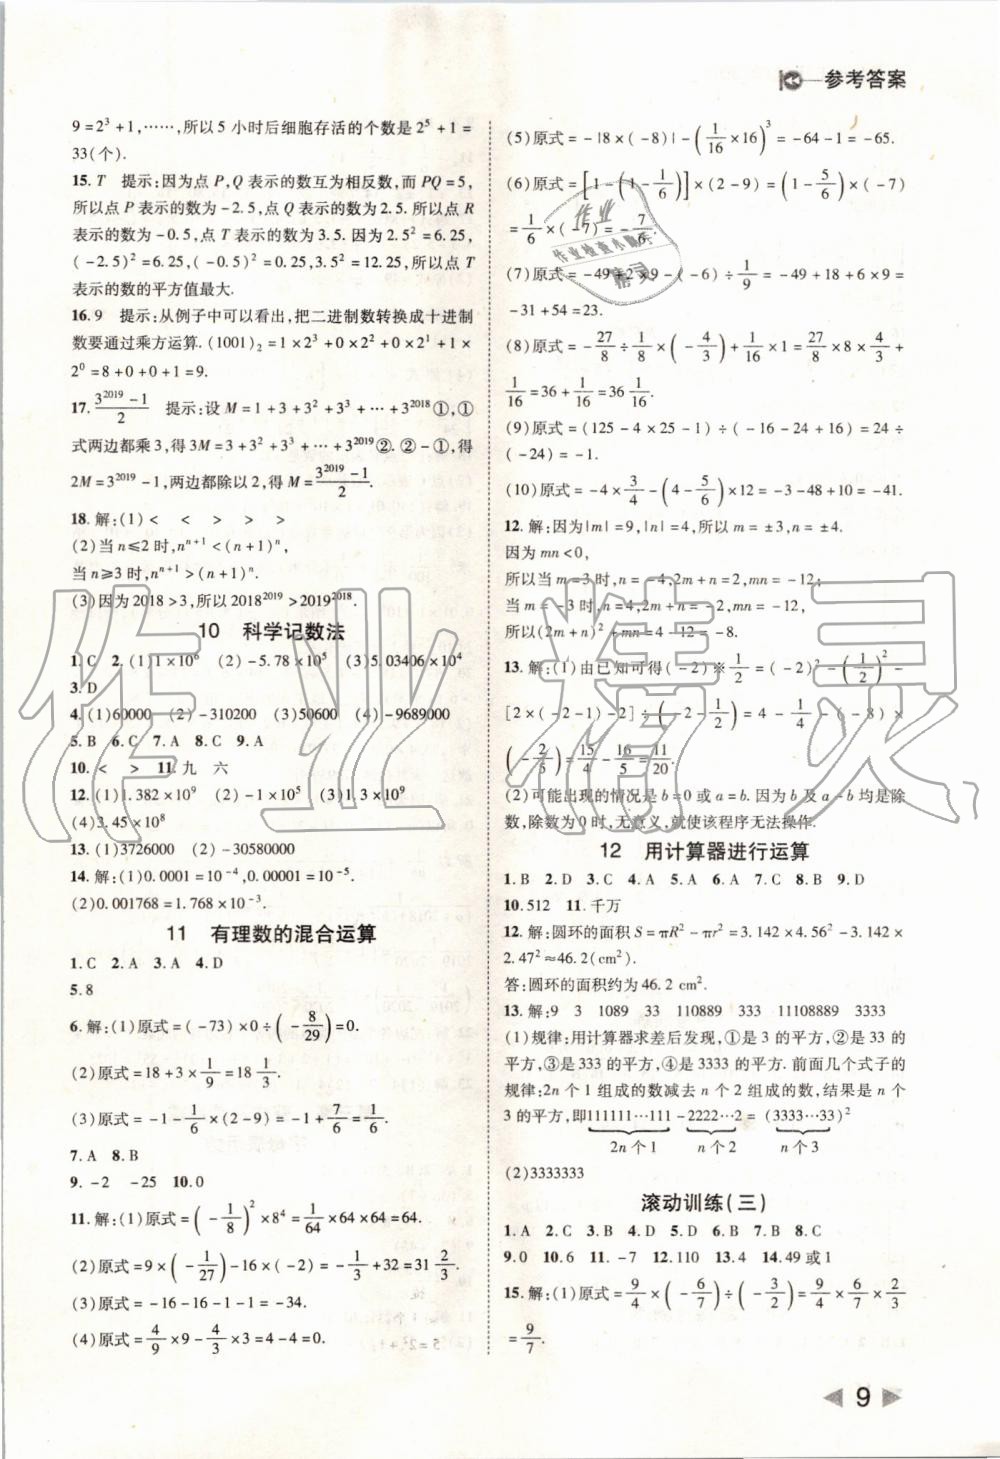 参考答案
9=2³+1,……,所以5小时后细胞存活的个数是2⁵+1=
33(个).
15.T 提示:因为点P,Q表示的数互为相反数,而PQ=5,
所以点P表示的数为-2.5,点Q表示的数为2.5.所以点R
表示的数为-0.5,点T表示的数为3.5.因为2.5²=6.25,
(-2.5)²=6.25,(-0.5)²=0.25,3.5²=12.25,所以点T
表示的数的平方值最大.
16.9 提示:从例子中可以看出,把二进制数转换成十进制
数要通过乘方运算.(1001)₂=1×2³+0×2²+0×2¹+1×
2⁰=8+0+0+1=9.
17.(3²⁰¹⁹-1)/2 提示:设M=1+3+3²+3³+…+3²⁰¹⁸①,①
式两边都乘3,得3M=3+3²+3³+…+3²⁰¹⁹②.②-①,得
2M=3²⁰¹⁹-1,两边都除以2,得M=(3²⁰¹⁹-1)/2.
18.解:(1)< < > > >
(2)当n≤2时,nⁿ⁺¹<(n+1)ⁿ,
当n≥3时,nⁿ⁺¹>(n+1)ⁿ.
(3)因为2018>3,所以2018²⁰¹⁹>2019²⁰¹⁸.
10 科学记数法
1.C 2.(1)1×10⁶ (2)-5.78×10⁵ (3)5.03406×10⁴
3.D
4.(1)60000 (2)-310200 (3)50600 (4)-9689000
5.B 6.C 7.A 8.C 9.A
10.< > 11.九 六
12.(1)1.382×10⁹ (2)-1×10⁵ (3)1.3×10⁹
(4)3.45×10⁸
13.(1)3726000 (2)-30580000
14.解:(1)0.0001=10⁻⁴,0.00001=10⁻⁵.
(2)0.001768=1.768×10⁻³.
11 有理数的混合运算
1.C 2.A 3.A 4.D
5.8
6.解:(1)原式=(-73)×0÷(-8/29)=0.
(2)原式=18+3×1/9=18 1/3.
(3)原式=-1-1/6×(2-9)=-1+7/6=1/6.
7.A 8.B
9.-2 -25 10.0
11.解:(1)原式=(-1/8)²×8⁴=1/64×64×64=64.
(2)原式=9×(-1/27)-16×(-2)=-1/3+32=31 2/3.
(3)原式=-16-16-1-1=-34.
(4)原式=4/9×9-4/3×3=4-4=0.
(5)原式=-|8×(-8)|-(1/16×16)³=-64-1=-65.
(6)原式=[1-(1-1/6)]×(2-9)=(1-5/6)×(-7)
=1/6×(-7)=-7/6.
(7)原式=-49+2×9-(-6)÷1/9=-49+18+6×9=
-31+54=23.
(8)原式=-27/8÷1/8×(-4/3)+1/16×1=27/8×8×4/3+
1/16=36+1/16=36 1/16.
(9)原式=(125-4×25-1)÷(-16-24+16)=24÷
(-24)=-1.
(10)原式=-4×3/4-(4-5/6)×12=-3-48+10=-41.
12.解:因为|m|=9,|n|=4,所以m=±3,n=±4.
因为mn<0,
所以当m=3时,n=-4,2m+n=2,mn=-12;
当m=-3时,n=4,2m+n=-2,mn=-12,
所以(2m+n)²+mn=4-12=-8.
13.解:(1)由已知可得(-2)※1/2=(-2)²-(1/2)²-
[2×(-2-1)-2]÷(-2-1/2)=4-1/4-(-8)×
(-2/5)=15/4-16/5=11/20.
(2)可能出现的情况是b=0或a=b.因为b及a-b均是除
数,除数为0时,无意义,就使该程序无法操作.
12 用计算器进行运算
1.B 2.D 3.C 4.A 5.C 6.A 7.B 8.B 9.D
10.512 11.千万
12.解:圆环的面积S=πR²-πr²=3.142×4.56²-3.142×
2.47²≈46.2(cm²).
答:圆环的面积约为46.2 cm².
13.解:9 3 1089 33 110889 333 11108889 3333
(1)规律:用计算器求差后发现,①是3的平方,②是33的
平方,③是333的平方,④是3333的平方.前面几个式子的
规律:2n个1组成的数减去n个2组成的数,结果是n个
3的平方,即111111…111-2222…2=(3333…33)²
2n个1 n个2 n个3
(2)3333333
滚动训练(三)
1.A 2.C 3.B 4.D 5.D 6.B 7.B 8.C
9.0 10.6 11.-7 12.110 13.4 14.49或1
15.解:(1)原式=9/4×(-6/7)÷(-3/2)=9/4×6/7×2/3
=9/7.
9
作业精灵
作业
作业检查小助手
精灵